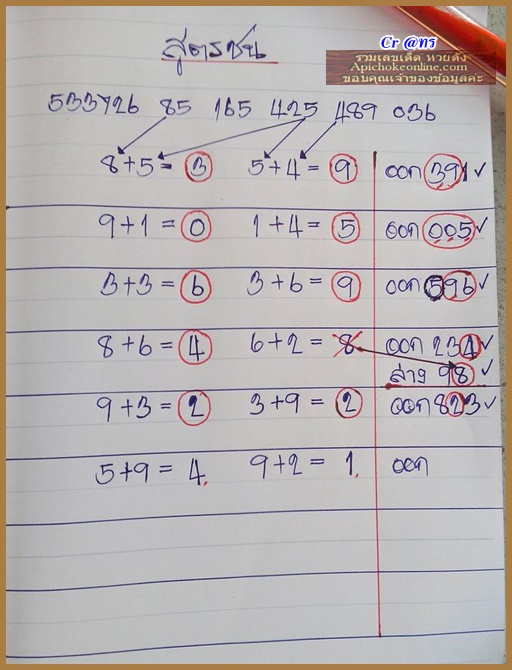 สูตรชน
Cr @ทร
รวมเลขเด็ด หวยดัง
Apichokeonline.com
ขอบคุณเจ้าของข้อมูลค่ะ
533726 85 165 425 489 036
8+5= 3 5+4 = 9 ออก 391 ✓
9+1 = 0 1+4 = 5 ออก 005 ✓
3+3 = 6 3+6 = 9 ออก 596 ✓
8+6 = 4 6+2 = 8 ออก 234 ✓
ล่าง 98 ✓
9+3 = 2 3+9 = 2 ออก 823 ✓
5+9 = 4. 9+2 = 1. ออก